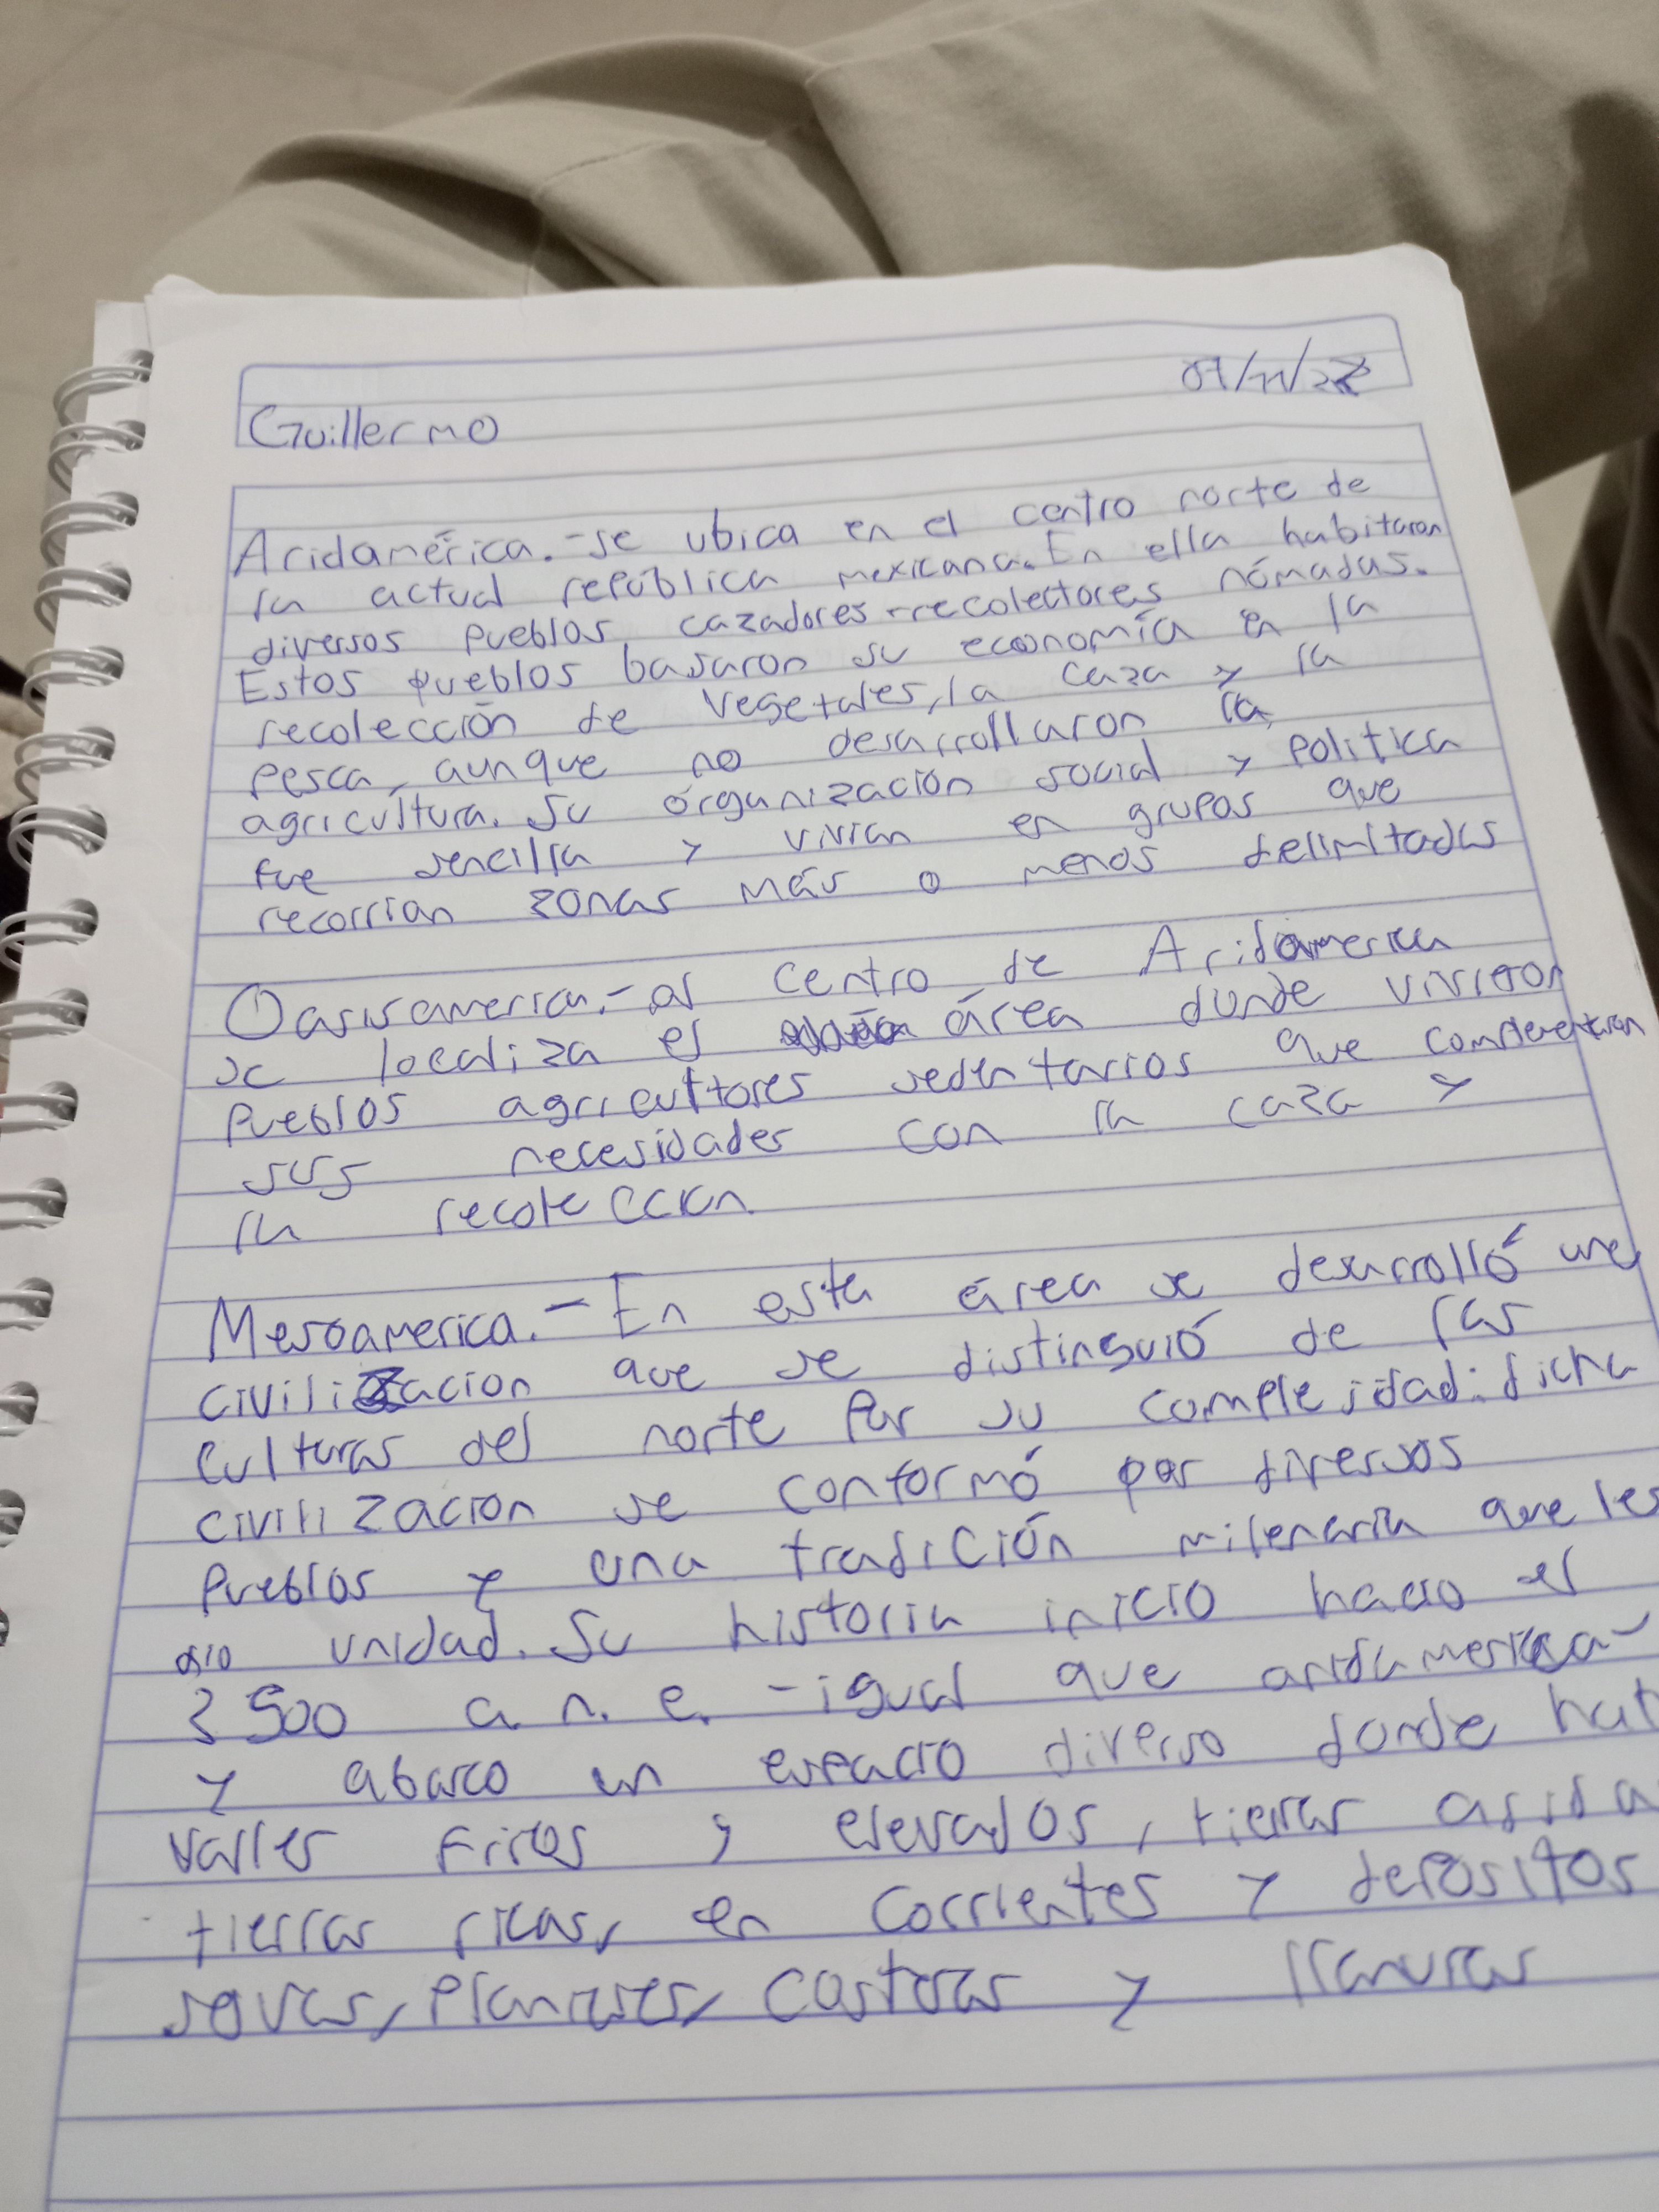 07/11/22
Guillermo
Aridamérica.-se ubica en el centro norte de
la actual república mexicana. En ella habitaron
diversos pueblos cazadores-recolectores nómadas.
Estos pueblos basaron su economía en la
recolección de vegetales, la caza y la
pesca, aunque no desarrollaron la
agricultura. Su organización social y politica
fue sencilla y vivian en grupos que
recorrian zonas más o menos delimitadas
Oasisamerica.- al centro de Aridamerica
se localiza el área dunde vivieron
pueblos agricultores sedentarios que complementaron
sus necesidades con la caza y
la recoleccion
Mesoamerica.- En esta área se desarrolló una
civilizacion que se distinguió de las
culturas del norte por su complejidad: dicha
civilizacion se conformó por diversos
pueblos y una tradición milenaria que les
dio unidad. Su historia inicio hacia el
2 500 a. n. e. - igual que aridamerica-
y abarco un espacio diverso donde
valles frios y elevados, tierras arida
tierras ricas, en corrientes y depositos
planicies, costeras y llanuras